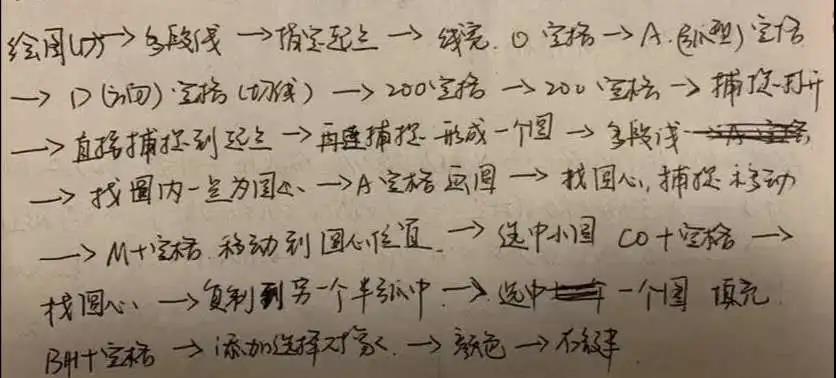 绘图(D)→多段线→指定起点→线宽.0空格→A.(弧型)空格
→D(方向)空格(切线)→200空格→200空格→捕捉打开
→直接捕捉到起点→再连捕捉形成一个圆→多段线
→找圆内一点为圆心→A空格画圆→找圆心,捕捉移动
→M+空格 移动到圆心位置→选中小圆 CO+空格→
找圆心→复制到另一个半弧中→选中一个圆 填充
BH+空格→添加选择对象.→颜色→